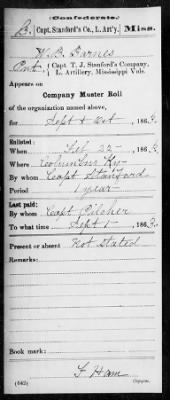 (Confederate.)
B, Capt. Stanford's Co., L. Art'y. Miss.
W. B. Barnes
Capt. T. J. Stanford's Company,
L. Artillery, Mississippi Vols.
Appears on
Company Muster Roll
of the organization named above,
for Sept & Oct, 186
Enlisted:
When 22, 186
Where Columbus Ky
By whom Capt Stanford
Period 1 year
Last paid:
By whom Capt Pilcher
To what time Sept 1, 186
Present or absent Not Stated
Remarks:
Book mark:
F Ham
(642) Copyist.